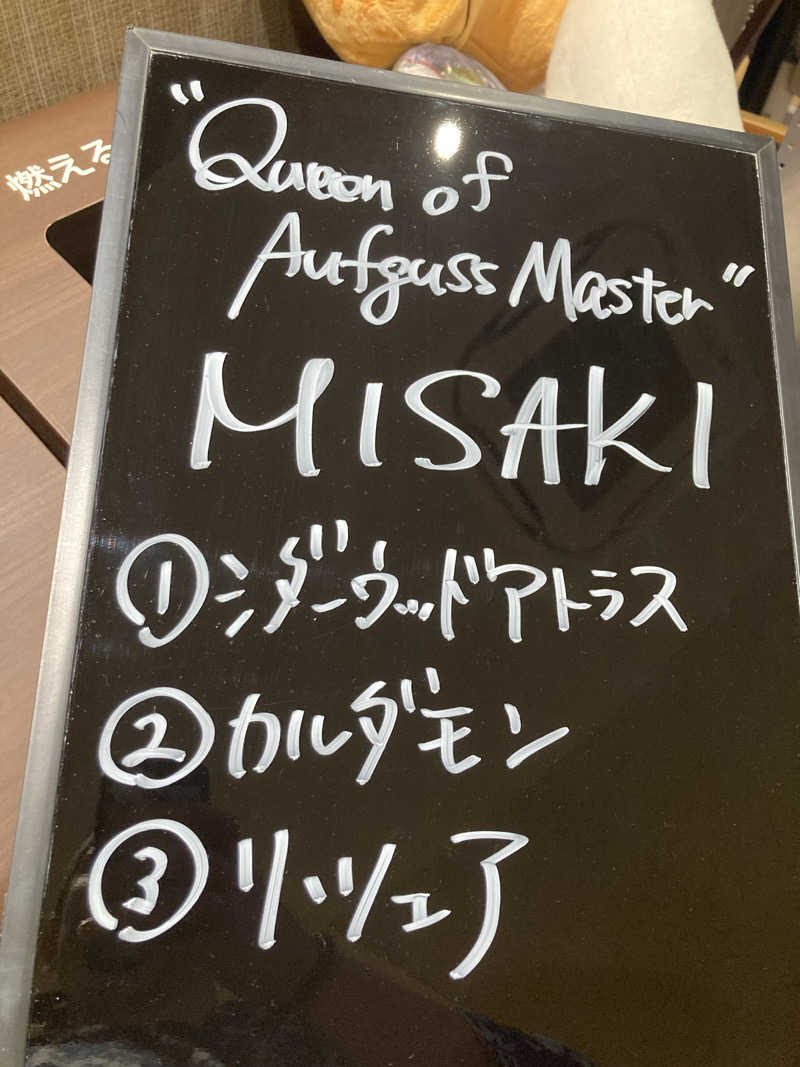 燃える
"Queen of
Aufguss Master"
MISAKI
①シダーウッドアトラス
②カルダモン
③リツェア